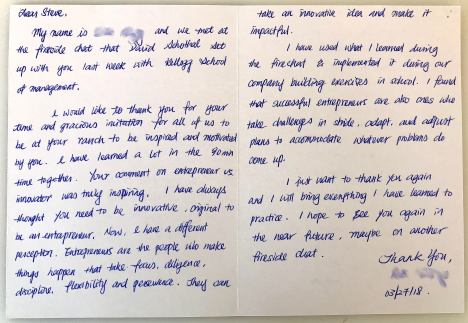 Dear Steve,
My name is and we met at
the fireside chat that David Schonthal set
up with you last week with Kellogg School
of management.
I would like to thank you for your
time and gracious invitation for all of us to
be at your ranch to be inspired and motivated
by you. I have learned a lot in the 90 min
time together. Your comment on entrepreneur vs.
innovator was truly inspiring. I have always
thought you need to be innovative, original to
be an entrepreneur. Now, I have a different
perception. Entrepreneurs are the people who make
things happen that take focus, diligence,
discipline, flexibility and perseverance. They can
take an innovative idea and make it
impactful.
I have used what I learned during
the firechat & implemented it during our
company building exercises in school. I found
that successful entrepreneur are also ones who
take challenges in stride, adapt, and adjust
plans to accommodate whatever problems do
come up.
I just want to thank you again
and I will bring everything I have learned to
practice. I hope to see you again in
the near future, maybe on another
fireside chat.
Thank You,
03/27/18.